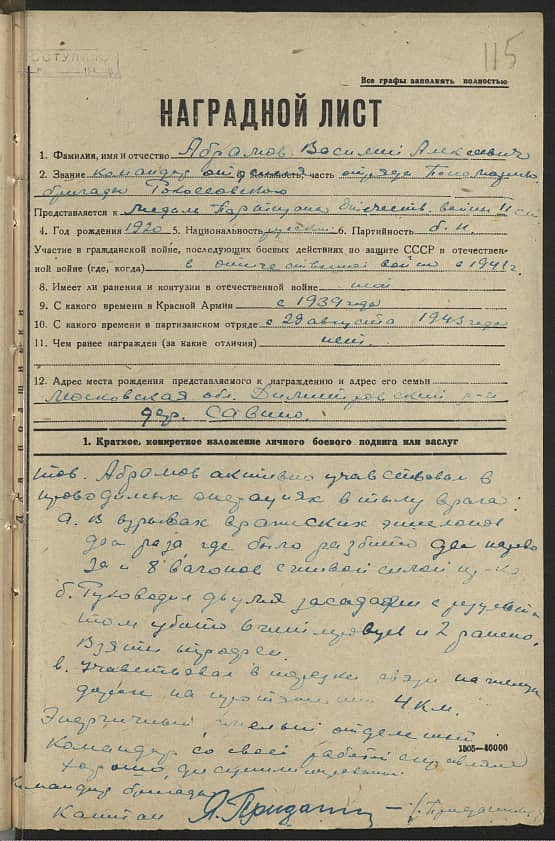 115
Все графы заполнять полностью
НАГРАДНОЙ ЛИСТ
1. Фамилия, имя и отчество Абрамов Василий Алексеевич
2. Звание командир отделения должность, часть отряда Пономаренко
бригады Рокоссовского
Представляется к медали Партизана Отечеств. войны II ст.
4. Год рождения 1920 5. Национальность русский 6. Партийность б.п.
Участие в гражданской войне, последующих боевых действиях по защите СССР в отечествен-
ной войне (где, когда) в отечественной войне с 1941 г.
8. Имеет ли ранения и контузии в отечественной войне
9. С какого времени в Красной Армии с 1939 года
10. С какого времени в партизанском отряде с 29 августа 1943 года
11. Чем ранее награжден (за какие отличия) нет.
12. Адрес места рождения представляемого к награждению и адрес его семьи
Московская обл. Димитровский р-н
дер. Савино.
1. Краткое, конкретное изложение личного боевого подвига или заслуг
тов. Абрамов активно учавствовал в
проводимых операциях в тылу врага:
а. В взрывах вражеских эшелонов
два раза, где было разбито два парово
за и 8 вагонов с живой силой пр-ка
б. Руководил двумя засадами в результа
том убито гитлеровцев и 2 ранено.
Взяты трофеи.
в. Учавствовал в порезке связи на железн
дороги на протяжении 4 км.
Энергичный, смелый отделений
командир, со своей работой справлялся
хорошо, дисциплинированный.
1505—40000
Командир бригады
Капитан